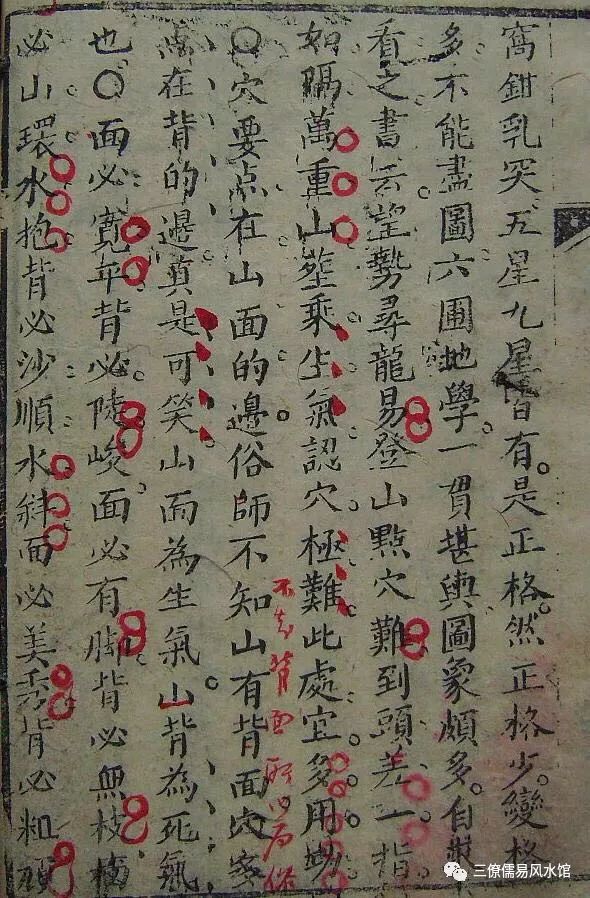 窩鉗乳突五星九星皆有。是正格。然正格少。變格
多。不能盡圖六圃地學一貫堪輿圖象頗多。自
看之書云望勢尋龍易登山點穴難到頭差一指
如隔萬重山葬乘生氣認穴極難此處宜多用
〇穴要点在山面的邊。俗師不知山有背面穴
点在背的邊真是可笑山面為生氣。山背為死氣
也〇面必寬平背必陡峻面必有脚背必無枝
必山環水抱背必沙順水斜面必美秀背必粗
不知背面所以為俗
三僚儒易风水馆